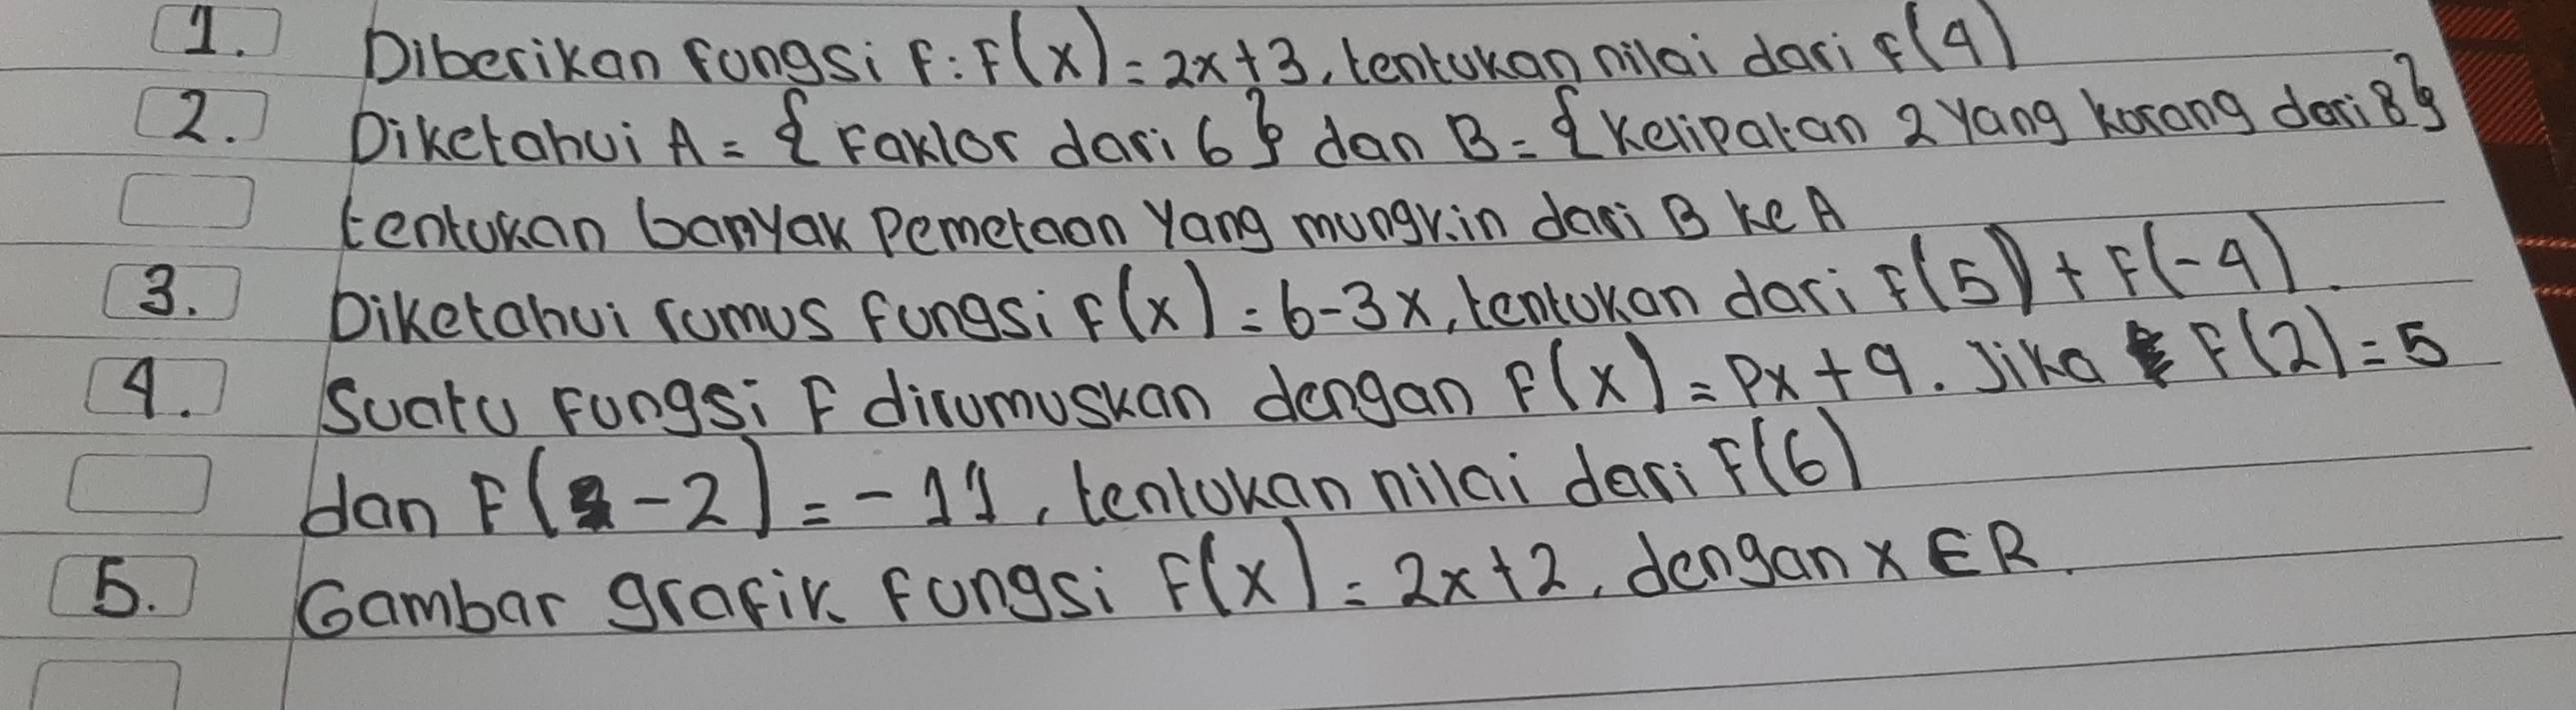 1. Diberikan fungsi f: F(x) = 2x+3, tentukan nilai dari f(4)
2. Diketahui A = { Faktor dari 6 } dan B = { Kelipatan 2 yang kurang dari 8 }
tentukan banyak Pemetaan Yang mungkin dari B ke A
3. Diketahui rumus fungsi f(x) = 6-3x, tentukan dari F(5) + F(-4).
4. Suatu Fungsi F dirumuskan dengan F(x) = Px + q. Jika F(2) = 5
dan F(-2) = -11, tentukan nilai dari F(6)
5. Gambar grafik Fungsi F(x) = 2x+2, dengan x ∈ R.